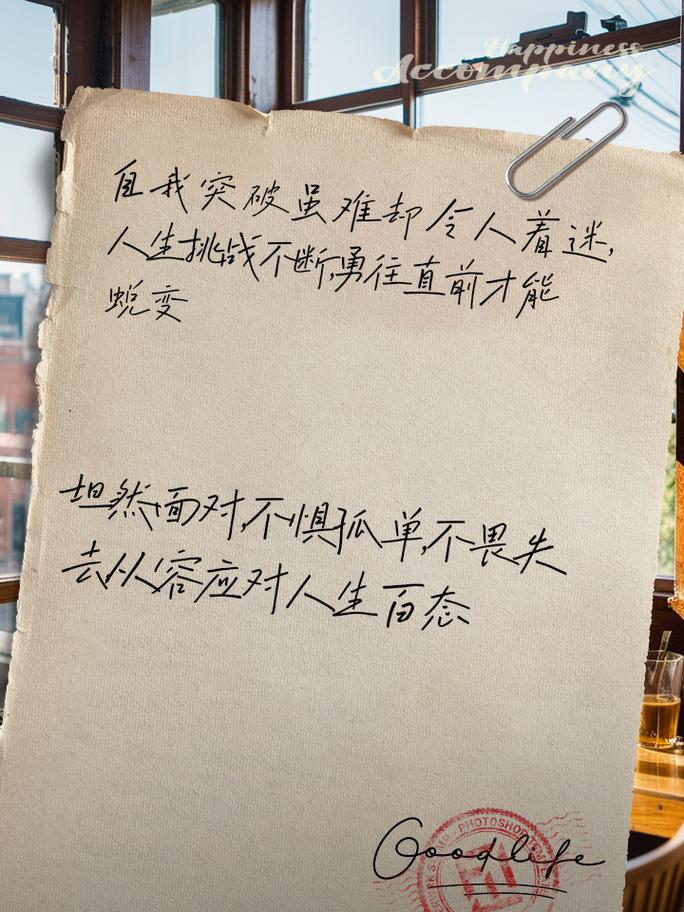 Happiness
Accompany
自我突破虽难却令人着迷,
人生挑战不断,勇往直前才能
蜕变
坦然面对,不惧孤单,不畏失
去从容应对人生百态
PHOTOSHOP
Goodlife